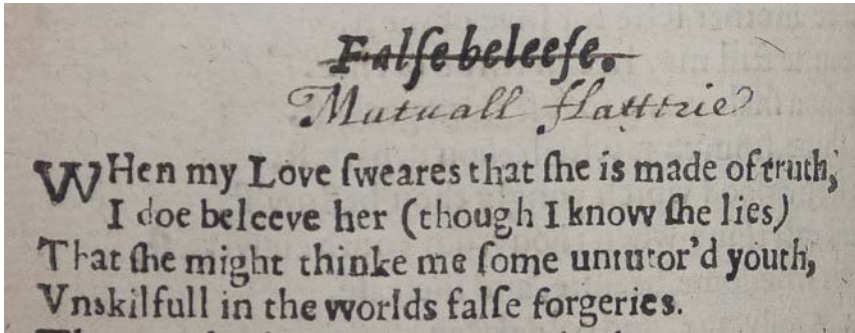 Falſe beleefe.
Mutuall flattrie
WHen my Love ſweares that ſhe is made of truth,
I doe beleeve her (though I know ſhe lies)
That ſhe might thinke me ſome untutor'd youth,
Vnskilfull in the worlds falſe forgeries.